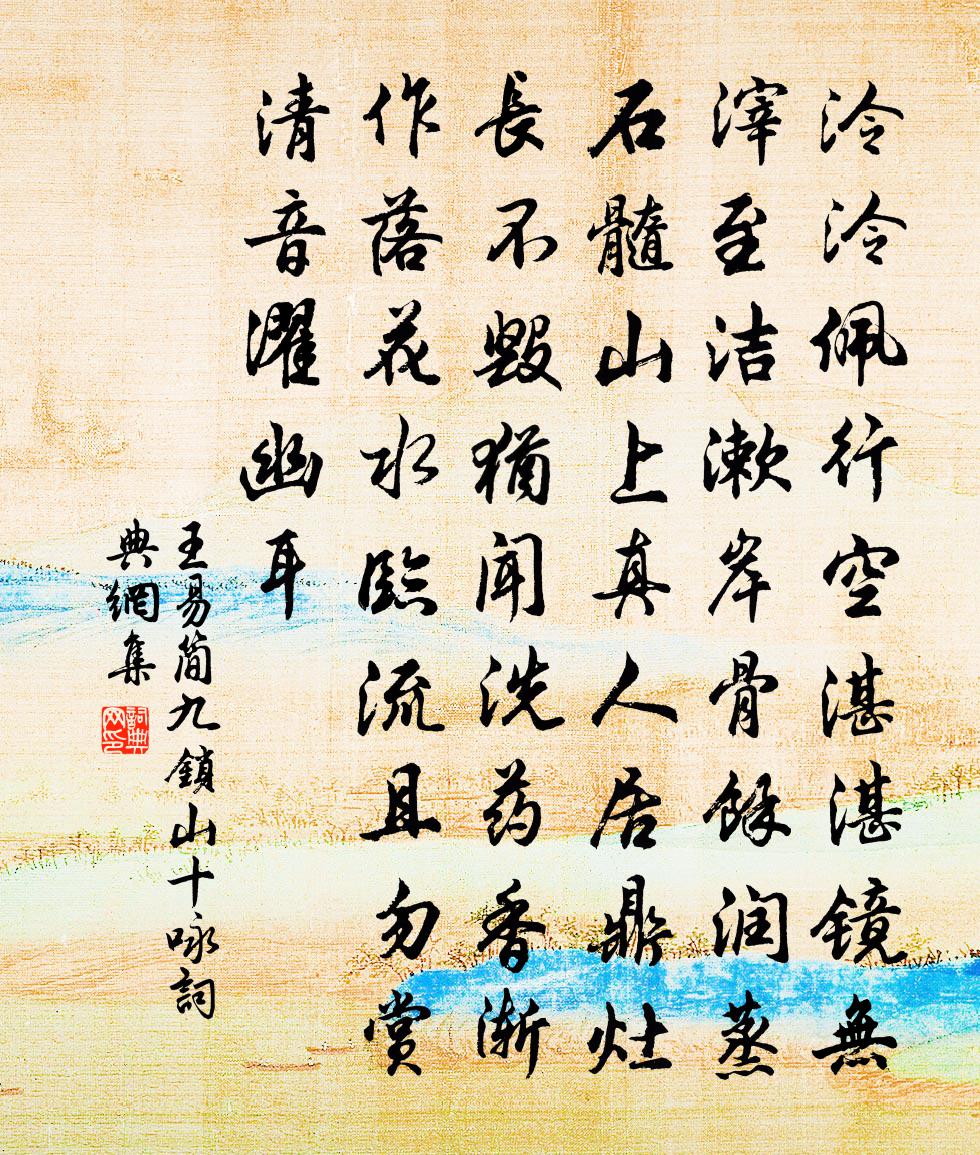 泠泠佩行空湛湛镜無
滓至洁漱岸骨餘润蒸
石髓山上真人居鼎灶
長不毁猶闻洗药香渐
作落花水臨流且勿赏
清音濯幽耳
王易简九鎖山十咏詞
典網集
詞典网印